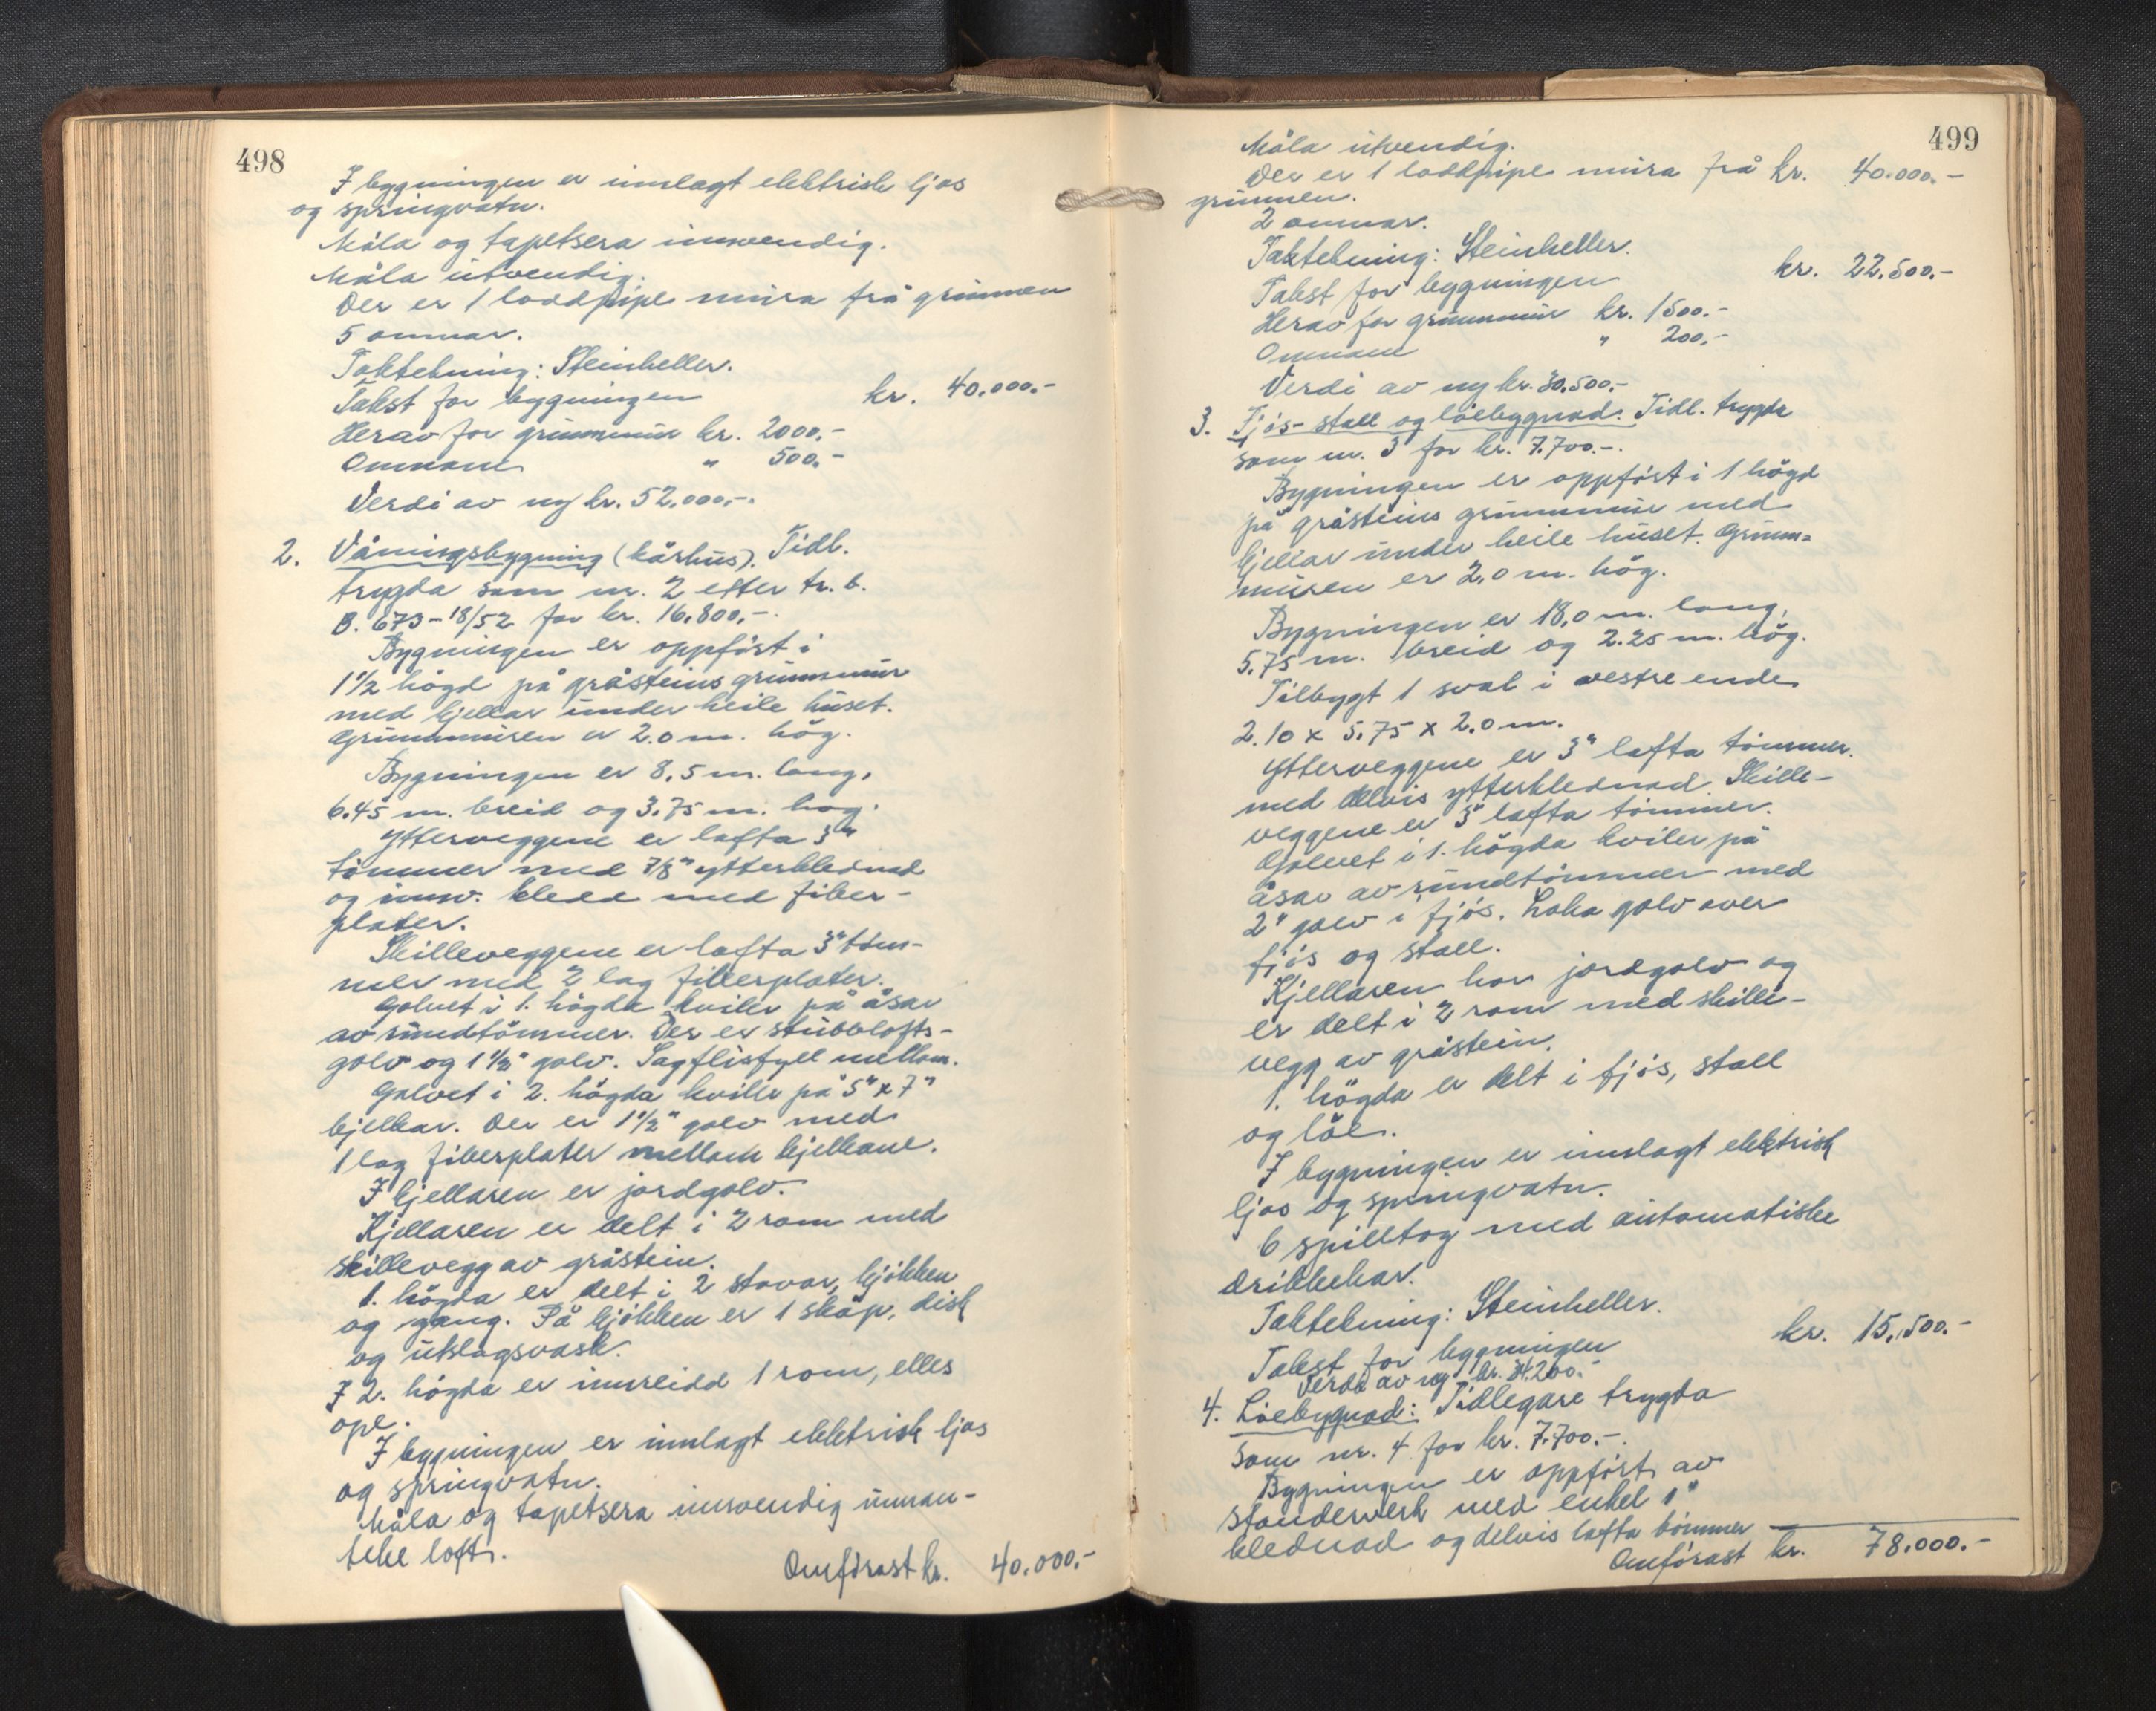 498
I bygningen er innlagt elektrisk ljos
og springvatn.
Måla og tapetsera innvendig.
Måla utvendig.
Der er 1 loddpipe mura frå grunnen
5 omnar.
Taktekning: Steinheller.
Takst for bygningen kr. 40.000.-
Herav for grunnmur kr. 2000.-
Omnane " 500.-
Verdi av ny kr. 52.000,-.
2. Våningsbygning (kårhus). Tidl.
trygda som nr. 2 etter tr. b.
B. 673-18/52 for kr. 16.800,-.
Bygningen er oppført i
1 1/2 høgd på gråsteins grunnmur
med kjellar under heile huset.
Grunnmuren er 2.0 m. høg.
Bygningen er 8,5 m. lang,
6.45 m. breid og 3.75 m. høg.
Ytterveggene er lafta 3"
tømmer med 7/8" ytterklednad
og innv. kledd med fiber-
plater.
Skilleveggene er lafta 3" tøm-
mer med 2 lag fiberplater.
Golvet i 1. høgda kviler på åsar
av rundtømmer. Der er stubblofts-
golv og 1 1/2" golv. Sagflisfyll mellom.
Golvet i 2. høgda kviler på 5" x 7"
bjelkar. Der er 1 1/2" golv med
1 lag fiberplater mellom bjelkane.
I kjellaren er jordgolv.
Kjellaren er delt i 2 rom med
skillevegg av gråstein.
1. høgda er delt i 2 stovar, kjøkken
og gang. På kjøkken er 1 skåp, disk
og utslagsvask.
I 2. høgda er innreidd 1 rom, elles
ope.
I bygningen er innlagt elektrisk ljos
og springvatn.
Måla og tapetsera innvendig unnan-
teke loft.
Omførast kr. 40.000.-
499
Måla utvendig.
Der er 1 loddpipe mura frå kr. 40.000.-
grunnen.
2 omnar.
Taktekning: Steinheller.
Takst for bygningen kr. 22.500.-
Herav for grunnmur kr. 1500.-
Omnane " 200.-
Verdi av ny kr. 30.500.-
3. Fjøs- stall og løebygnad. Tidl. trygda
som nr. 3 for kr. 7.700.-.
Bygningen er oppført i 1 høgd
på gråsteins grunnmur med
kjellar under heile huset. Grunn=
muren er 2,0 m. høg.
Bygningen er 18,0 m. lang,
5.75 m. breid og 2.25 m. høg.
Tilbygt 1 sval i vestre ende
2.10 x 5.75 x 2.0 m.
Ytterveggene er 3" lafta tømmer.
med delvis ytterklednad. Skille-
veggene er 3" lafta tømmer.
Golvet i 1. høgda kviler på
åsar av rundtømmer med
2" golv i fjøs. Loka golv over
fjøs og stall.
Kjellaren har jordgolv og
er delt i 2 rom med skille-
vegg av gråstein.
1. høgda er delt i fjøs, stall
og løe.
I bygningen er innlagt elektrisk
ljos og springvatn.
6 spilltog med automatiske
drikkekar.
Taktekning: Steinheller.
Takst for bygningen kr. 15.500.-
Verdi av ny kr. 24.200.-
4. Løebygnad: Tidlegare trygda
som nr. 4 for kr. 7.700.-.
Bygningen er oppført av
standerverk med enkel 1"
klednad og delvis lafta tømmer
Omførast kr. 78.000.-